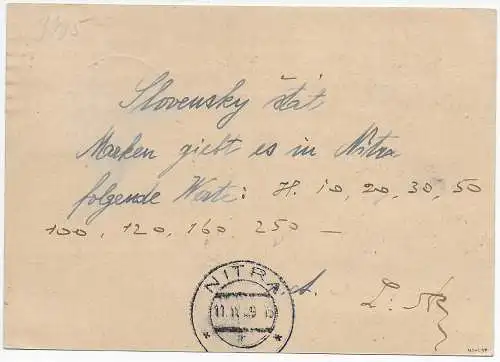 Slovensky štát
Marken giebt es in Nitra
folgende Werte: H. 10, 20, 30, 50
100, 120, 160, 250 —
NITRA